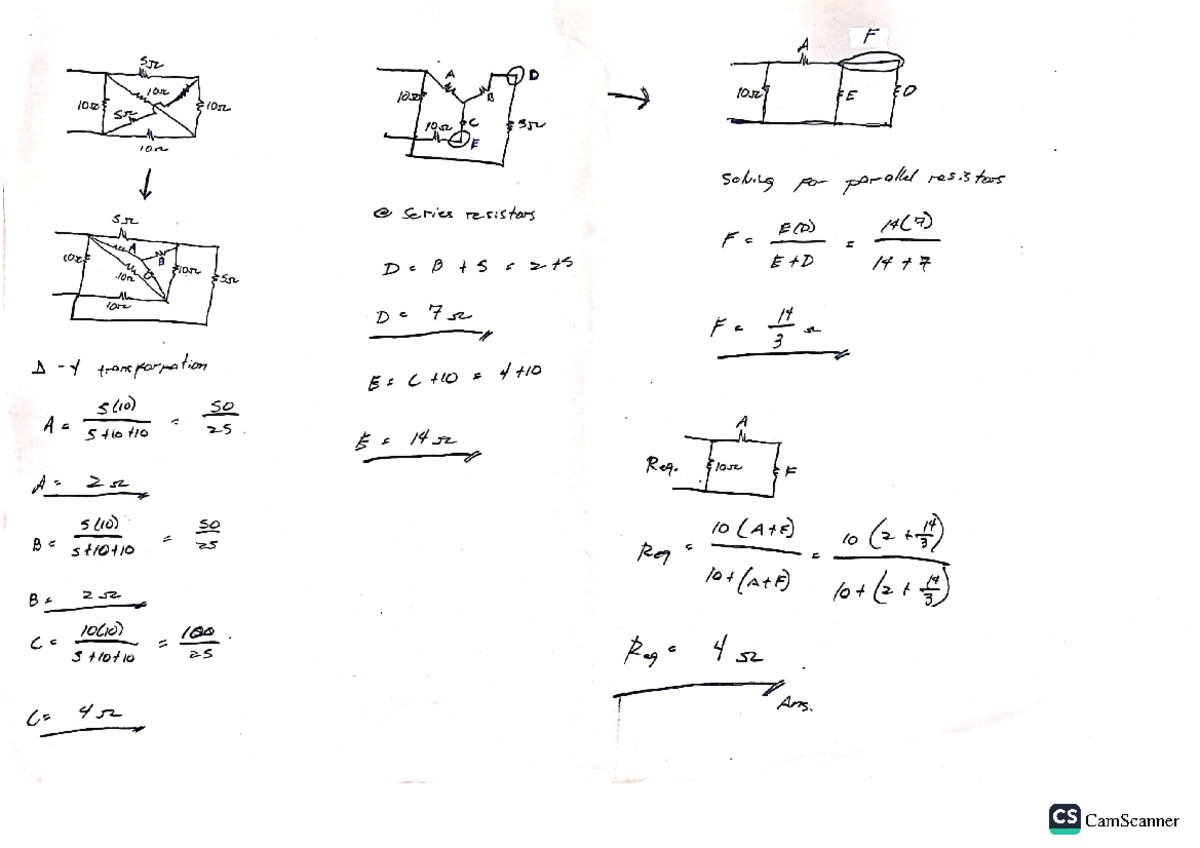 5Ω
10Ω
10Ω
10Ω
5Ω
10Ω
5Ω
A
B
10Ω
10Ω
10Ω
5Ω
10Ω
Δ - Y transformation
A = 5(10) / 5+10+10 = 50 / 25
A = 2Ω
B = 5(10) / 5+10+10 = 50 / 25
B = 2Ω
C = 10(10) / 5+10+10 = 100 / 25
C = 4Ω
A
B
D
10Ω
C
10Ω
E
5Ω
@ series resistors
D = B + 5 = 2+5
D = 7Ω
E = C +10 = 4+10
E = 14Ω
A
F
10Ω
E
D
Solving for parallel resistors
F = E(D) / E+D = 14(7) / 14+7
F = 14/3 Ω
A
Req.
10Ω
F
Req = 10(A+F) / 10+(A+F) = 10(2+14/3) / 10+(2+14/3)
Req = 4Ω
Ans.
CS CamScanner